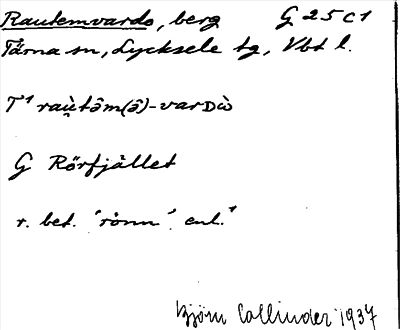 Rautemvardo, berg G 25 c 1
Tärna sn, Lycksele lg, Vbt l.
T¹ raṷ̀tə̑m(ə̑)-varDὼ
G Rörfjället
r. bet. 'rönn' enl.¹
Björn Collinder 1937